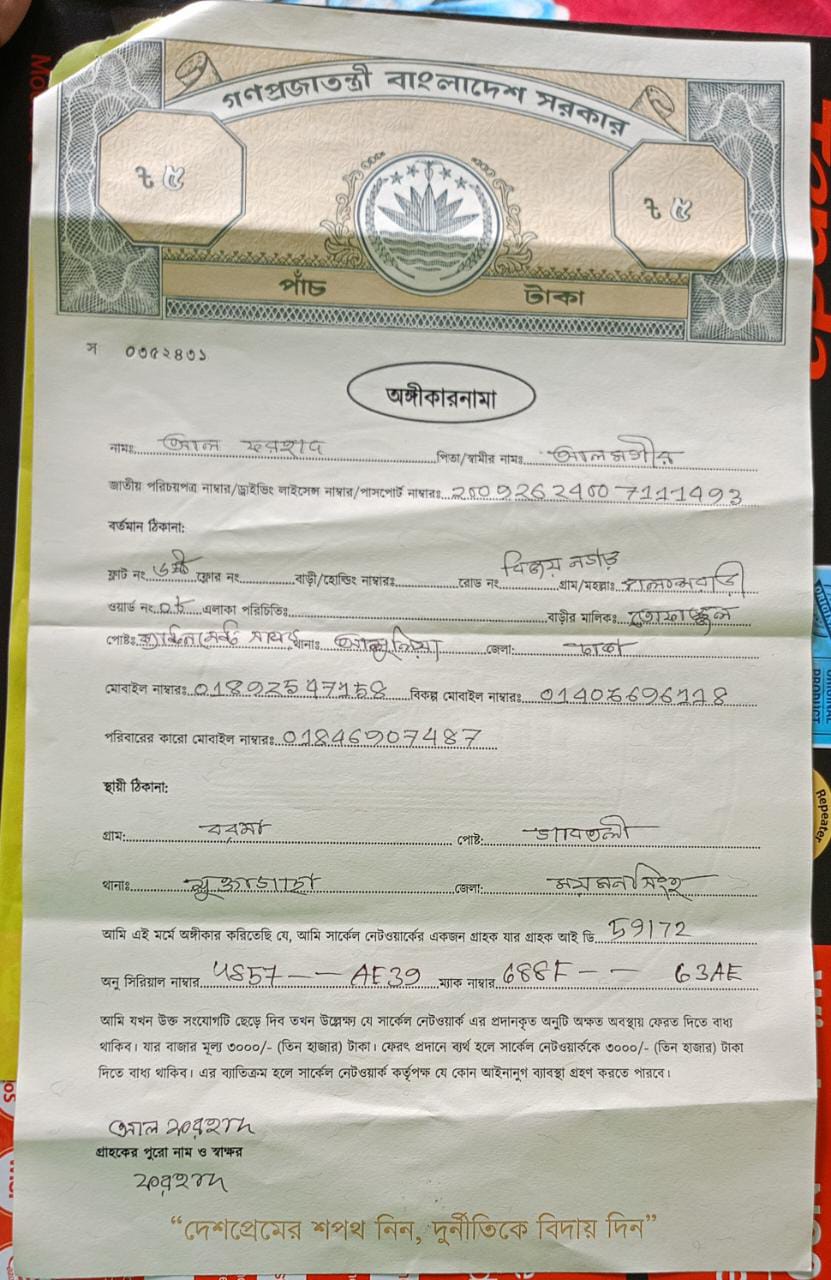 গণপ্রজাতন্ত্রী বাংলাদেশ সরকার
৳ ৫
৳ ৫
পাঁচ টাকা
স ০৩৫২৪৩১
অঙ্গীকারনামা
নামঃ আল ফরহাদ পিতা/স্বামীর নামঃ আলমগীর
জাতীয় পরিচয়পত্র নাম্বার/ড্রাইভিং লাইসেন্স নাম্বার/পাসপোর্ট নাম্বারঃ 20092624007111493
বর্তমান ঠিকানা:
ফ্লাট নং ফ্লোর নং বাড়ী/হোল্ডিং নাম্বারঃ রোড নং গ্রাম/মহল্লাঃ
ওয়ার্ড নং ০৮ এলাকা পরিচিতিঃ বাড়ীর মালিকঃ তোফাজ্জল
পোষ্টঃ থানাঃ আশুলিয়া জেলা: ঢাকা
মোবাইল নাম্বারঃ 01892547158 বিকল্প মোবাইল নাম্বারঃ 01405696118
পরিবারের কারো মোবাইল নাম্বারঃ 01846907487
স্থায়ী ঠিকানা:
গ্রাম: পোষ্ট: গাবতলী
থানাঃ মুক্তাগাছা জেলা: ময়মনসিংহ
আমি এই মর্মে অঙ্গীকার করিতেছি যে, আমি সার্কেল নেটওয়ার্কের একজন গ্রাহক যার গ্রাহক আই ডি 59172
অনু সিরিয়াল নাম্বার 4857 - - AE39 ম্যাক নাম্বার 688F - - 63AE
আমি যখন উক্ত সংযোগটি ছেড়ে দিব তখন উল্লেক্ষ্য যে সার্কেল নেটওয়ার্ক এর প্রদানকৃত অনুটি অক্ষত অবস্থায় ফেরত দিতে বাধ্য
থাকিব। যার বাজার মূল্য ৩০০০/- (তিন হাজার) টাকা। ফেরৎ প্রদানে ব্যর্থ হলে সার্কেল নেটওয়ার্ককে ৩০০০/- (তিন হাজার) টাকা
দিতে বাধ্য থাকিব। এর ব্যাতিক্রম হলে সার্কেল নেটওয়ার্ক কর্তৃপক্ষ যে কোন আইনানুগ ব্যাবস্থা গ্রহণ করতে পারবে।
আল ফরহাদ
গ্রাহকের পুরো নাম ও স্বাক্ষর
ফরহাদ
“দেশপ্রেমের শপথ নিন, দুর্নীতিকে বিদায় দিন”
Repeater